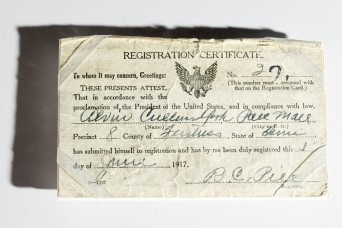 REGISTRATION CERTIFICATE.
To whom it may concern, Greetings:
No. 27,
(This number must correspond with
that on the Registration Card.)
THESE PRESENTS ATTEST,
That in accordance with the
proclamation of the President of the United States, and in compliance with law,
Alvin Cullum York Pall Mall
(Name) (City or P.O.)
Precinct 8 County of Fentress, State of Tenn
has submitted himself to registration and has by me been duly registered this 5
day of June 1917.
B. C. Pile